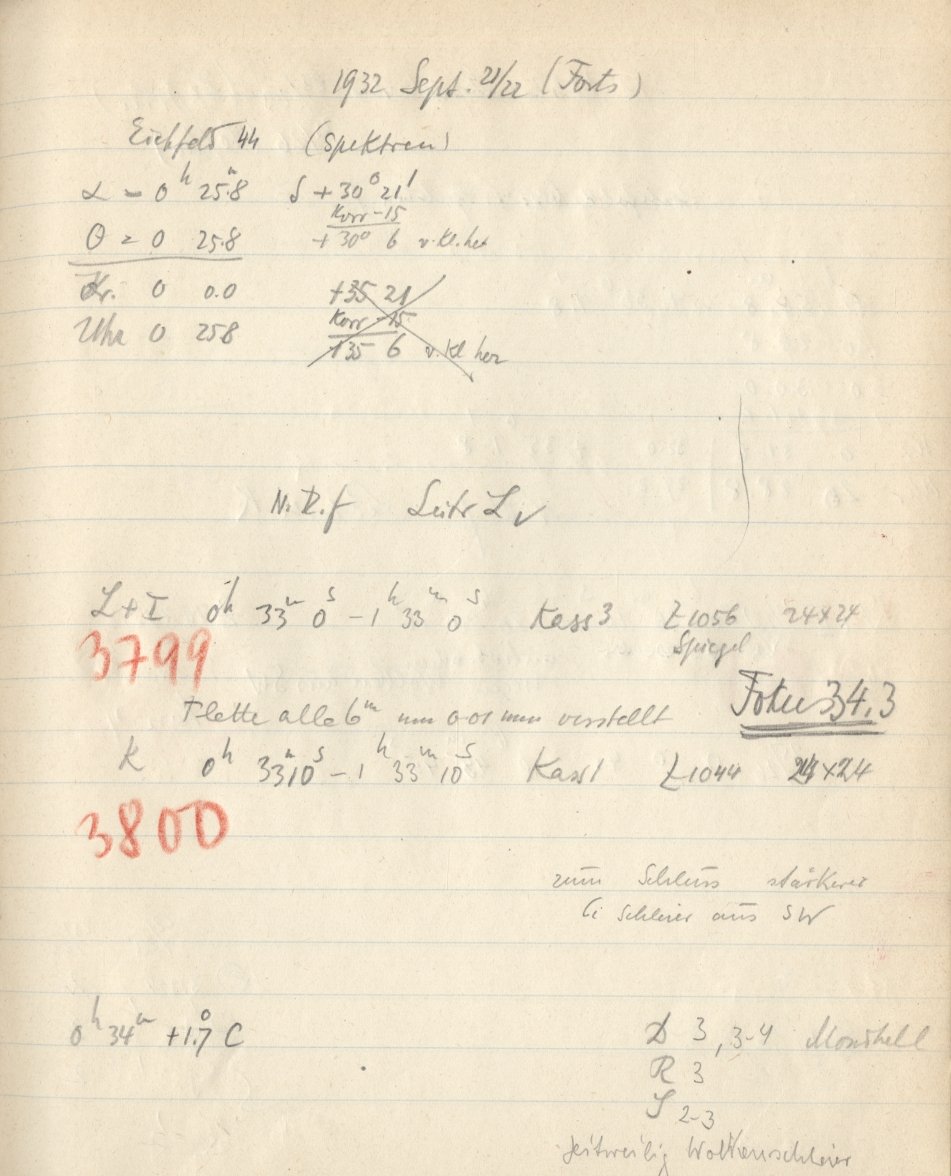 1932 Sept. 21/22 (Forts)
Eichfeld 44 (Spektren)
α = 0ʰ 25ᵐ.8 δ +30° 21'
Korr -15
θ = 0 25.8 +30° 6 v. Kl. her
Kr. 0 0.0 +35 21
Korr -15
Uhr 0 25.8 +35 6 v. Kl her
N. R. f Seite L v
L+I 0ʰ 33ᵐ 0ˢ - 1ʰ 33ᵐ 0ˢ Kass 3 Z 1056 24x24
Spiegel
3799
Fokus 34.3
Platte alle 6ᵐ um 0.01 mm verstellt
K 0ʰ 33ᵐ10ˢ - 1ʰ 33ᵐ 10ˢ Kass 1 Z 1044 24x24
3800
zum Schluss stärkerer
Ci Schleier aus SW
0ʰ 34ᵐ +1.7° C D 3, 3-4 Mondhell
R 3
S 2-3
Zeitweilig Wolkenschleier